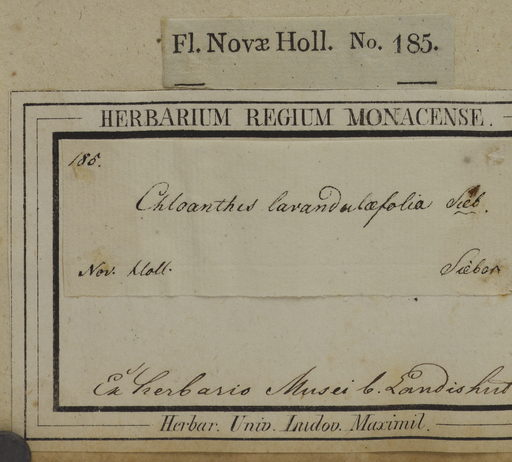 Fl. Novæ Holl. No. 185.
HERBARIUM REGIUM MONACENSE.
185.
Chloanthes lavandulæfolia Sieb.
Nov. Holl.
Sieber
Ex herbario Musei b. Landishut
Herbar. Univ. Ludov. Maximil.